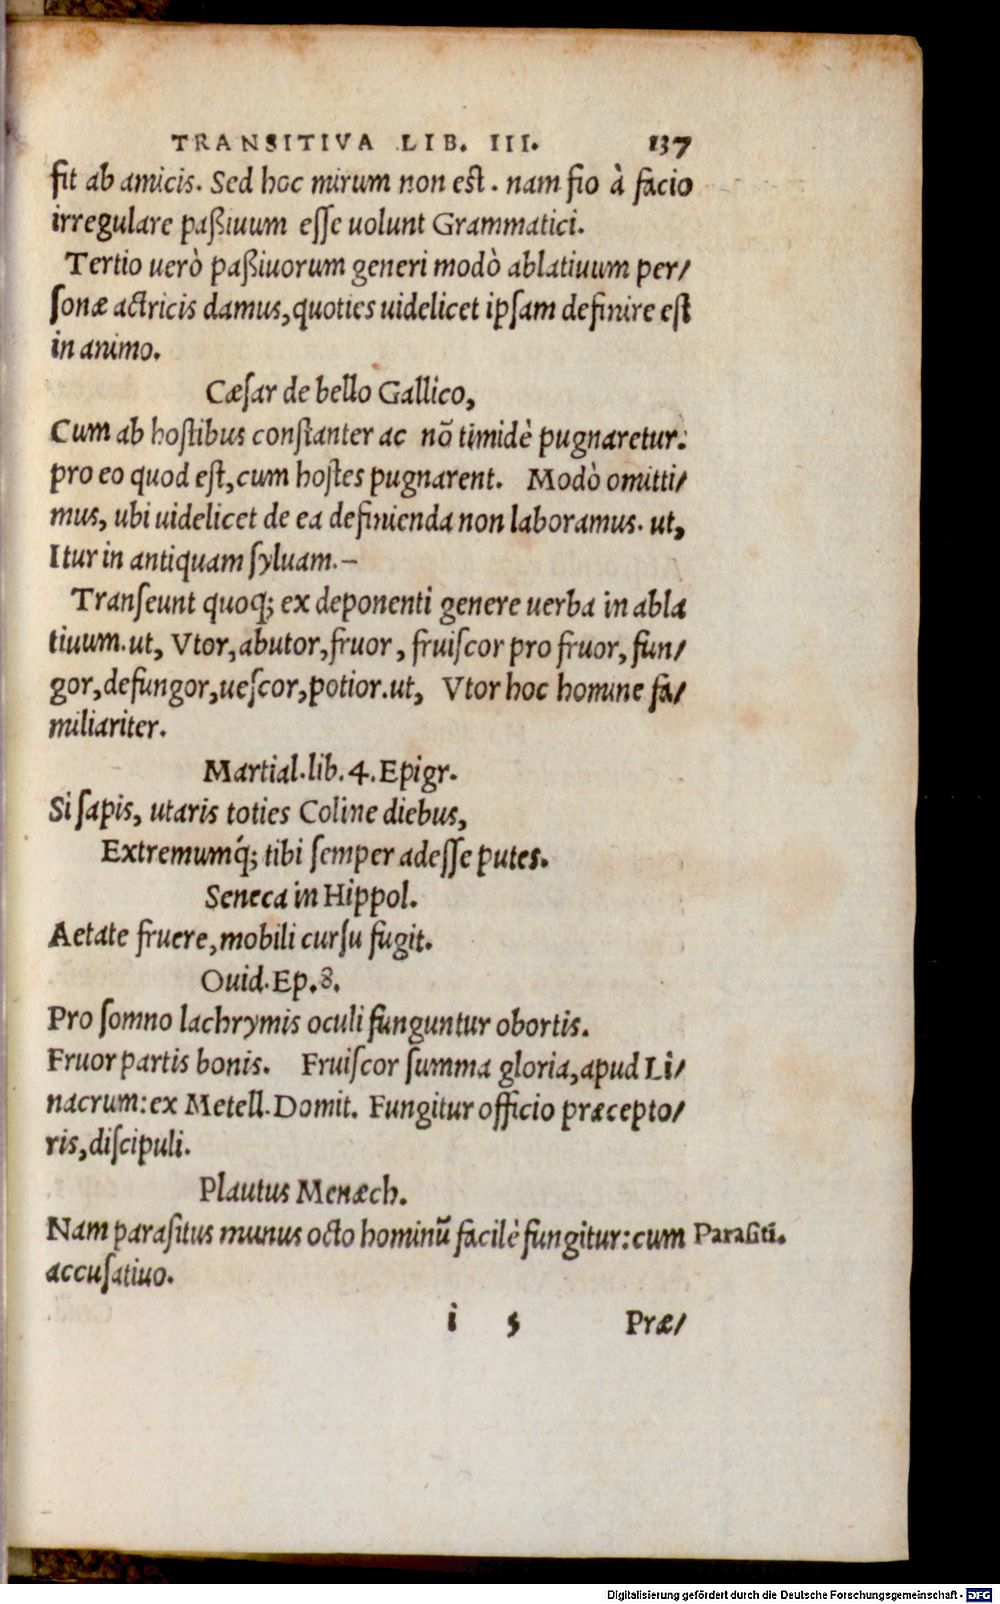 TRANSITIVA LIB. III. 137
fit ab amicis. Sed hoc mirum non est. nam fio à facio
irregulare paßiuum esse uolunt Grammatici.
Tertio uerò paßiuorum generi modò ablatiuum per/
ſonæ actricis damus, quoties uidelicet ipſam definire eſt
in animo.
Cæſar de bello Gallico,
Cum ab hoſtibus conſtanter ac nõ timidè pugnaretur:
pro eo quod eſt, cum hoſtes pugnarent. Modò omitti/
mus, ubi uidelicet de ea definienda non laboramus. ut,
Itur in antiquam ſyluam.–
Tranſeunt quoq; ex deponenti genere uerba in abla
tiuum. ut, Vtor, abutor, fruor, fruiſcor pro fruor, fun/
gor, defungor, ueſcor, potior. ut, Vtor hoc homine fa/
miliariter.
Martial. lib. 4. Epigr.
Si ſapis, utaris toties Coline diebus,
Extremumq́; tibi ſemper adeſſe putes.
Seneca in Hippol.
Aetate fruere, mobili curſu fugit.
Ouid. Ep. 8.
Pro ſomno lachrymis oculi funguntur obortis.
Fruor partis bonis. Fruiſcor ſumma gloria, apud Li/
nacrum: ex Metell. Domit. Fungitur officio præcepto/
ris, diſcipuli.
Plautus Menæch.
Nam paraſitus munus octo hominũ facilè fungitur: cum Paraſiti.
accuſatiuo.
i 5 Præ/
Digitalisierung gefördert durch die Deutsche Forschungsgemeinschaft - DFG